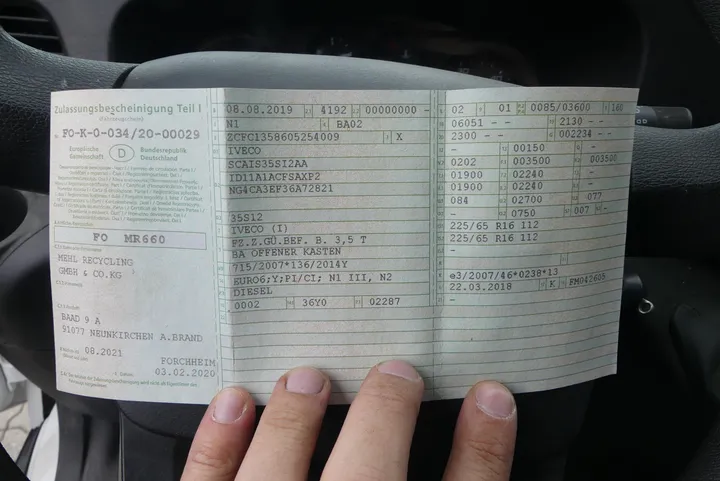 Zulassungsbescheinigung Teil I
(Fahrzeugschein)
FO-K-0-034/20-00029
Europäische Gemeinschaft
D
Bundesrepublik Deutschland
FO MR660
MEHL RECYCLING
GMBH & CO.KG
BAAD 9 A
91077 NEUNKIRCHEN A.BRAND
08.2021
FORCHHEIM
03.02.2020
08.08.2019 4192 00000000 -
N1 BA02
ZCFC1358605254009 X
IVECO
SCAIS35SI2AA
ID11A1ACFSAXP2
NG4CA3EF36A72821
35S12
IVECO (I)
FZ.Z.GÜ.BEF. B. 3,5 T
BA OFFENER KASTEN
715/2007*136/2014Y
EURO6;Y;PI/CI; N1 III, N2
DIESEL
0002 36Y0 02287
02 01 0085/03600 160
06051 - - 2130 - -
2300 - - 002234 - -
- 00150 -
0202 003500 003500
01900 02240 -
01900 02240 -
084 02700 - 077
- 0750 007 -
225/65 R16 112
225/65 R16 112
-
-
e3/2007/46*0238*13
22.03.2018 K FM042605
-